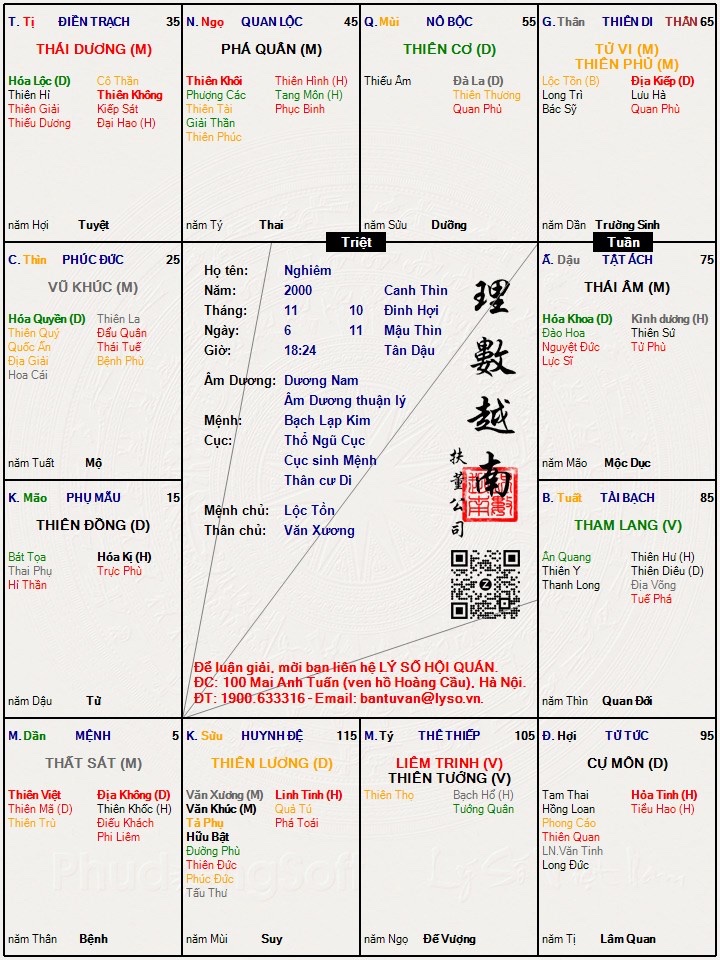 T. Tị ĐIỀN TRẠCH 35
THÁI DƯƠNG (M)
Hóa Lộc (Đ) Cô Thần
Thiên Hỉ Thiên Không
Thiên Giải Kiếp Sát
Thiếu Dương Đại Hao (H)
năm Hợi Tuyệt
N. Ngọ QUAN LỘC 45
PHÁ QUÂN (M)
Thiên Khôi Thiên Hình (H)
Phượng Các Tang Môn (H)
Thiên Tài Phục Binh
Giải Thần
Thiên Phúc
năm Tý Thai
Q. Mùi NÔ BỘC 55
THIÊN CƠ (Đ)
Thiếu Âm Đà La (Đ)
Thiên Thương
Quan Phủ
năm Sửu Dưỡng
G. Thân THIÊN DI THÂN 65
TỬ VI (M)
THIÊN PHỦ (M)
Lộc Tồn (B) Địa Kiếp (Đ)
Long Trì Lưu Hà
Bác Sỹ Quan Phù
năm Dần Trường Sinh
Triệt
Tuần
C. Thìn PHÚC ĐỨC 25
VŨ KHÚC (M)
Hóa Quyền (Đ) Thiên La
Thiên Quý Đẩu Quân
Quốc Ấn Thái Tuế
Địa Giải Bệnh Phù
Hoa Cái
năm Tuất Mộ
Họ tên: Nghiêm
Năm: 2000 Canh Thìn
Tháng: 11 10 Đinh Hợi
Ngày: 6 11 Mậu Thìn
Giờ: 18:24 Tân Dậu
Âm Dương: Dương Nam
Âm Dương thuận lý
Mệnh: Bạch Lạp Kim
Cục: Thổ Ngũ Cục
Cục sinh Mệnh
Thân cư Di
Mệnh chủ: Lộc Tồn
Thân chủ: Văn Xương
理數越南
扶董公司
Để luận giải, mời bạn liên hệ LÝ SỐ HỘI QUÁN.
ĐC: 100 Mai Anh Tuấn (ven hồ Hoàng Cầu), Hà Nội.
ĐT: 1900.633316 - Email: bantuvan@lyso.vn.
Ấ. Dậu TẬT ÁCH 75
THÁI ÂM (M)
Hóa Khoa (Đ) Kình dương (H)
Đào Hoa Thiên Sứ
Nguyệt Đức Tử Phù
Lực Sĩ
năm Mão Mộc Dục
K. Mão PHỤ MẪU 15
THIÊN ĐỒNG (Đ)
Bát Tọa Hóa Kị (H)
Thai Phụ Trực Phù
Hỉ Thần
năm Dậu Tử
B. Tuất TÀI BẠCH 85
THAM LANG (V)
Ân Quang Thiên Hư (H)
Thiên Y Thiên Diêu (Đ)
Thanh Long Địa Võng
Tuế Phá
năm Thìn Quan Đới
M. Dần MỆNH 5
THẤT SÁT (M)
Thiên Việt Địa Không (Đ)
Thiên Mã (Đ) Thiên Khốc (H)
Thiên Trù Điếu Khách
Phi Liêm
năm Thân Bệnh
K. Sửu HUYNH ĐỆ 115
THIÊN LƯƠNG (Đ)
Văn Xương (M) Linh Tinh (H)
Văn Khúc (M) Quả Tú
Tả Phụ Phá Toái
Hữu Bật
Đường Phù
Thiên Đức
Phúc Đức
Tấu Thư
năm Mùi Suy
M. Tý THÊ THIẾP 105
LIÊM TRINH (V)
THIÊN TƯỚNG (V)
Thiên Thọ Bạch Hổ (H)
Tướng Quân
năm Ngọ Đế Vượng
Đ. Hợi TỬ TỨC 95
CỰ MÔN (Đ)
Tam Thai Hỏa Tinh (H)
Hồng Loan Tiểu Hao (H)
Phong Cáo
Thiên Quan
LN.Văn Tinh
Long Đức
năm Tị Lâm Quan